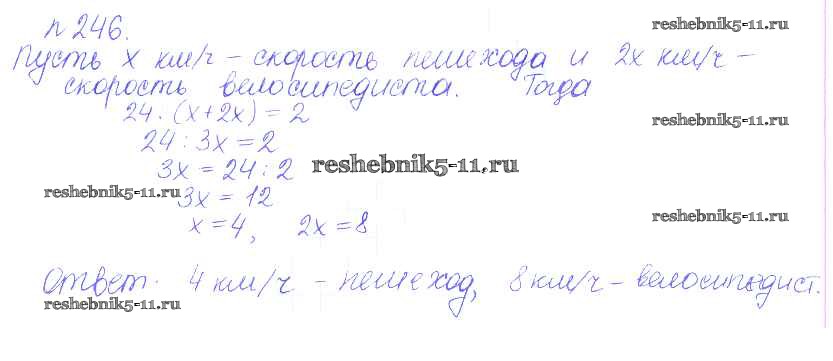 № 246.
reshebnik5-11.ru
Пусть x км/ч – скорость пешехода и 2x км/ч –
скорость велосипедиста. Тогда
24 : (x + 2x) = 2
reshebnik5-11.ru
24 : 3x = 2
3x = 24 : 2
reshebnik5-11.ru
reshebnik5-11.ru
3x = 12
x = 4, 2x = 8
reshebnik5-11.ru
Ответ. 4 км/ч – пешеход, 8 км/ч – велосипедист.
reshebnik5-11.ru